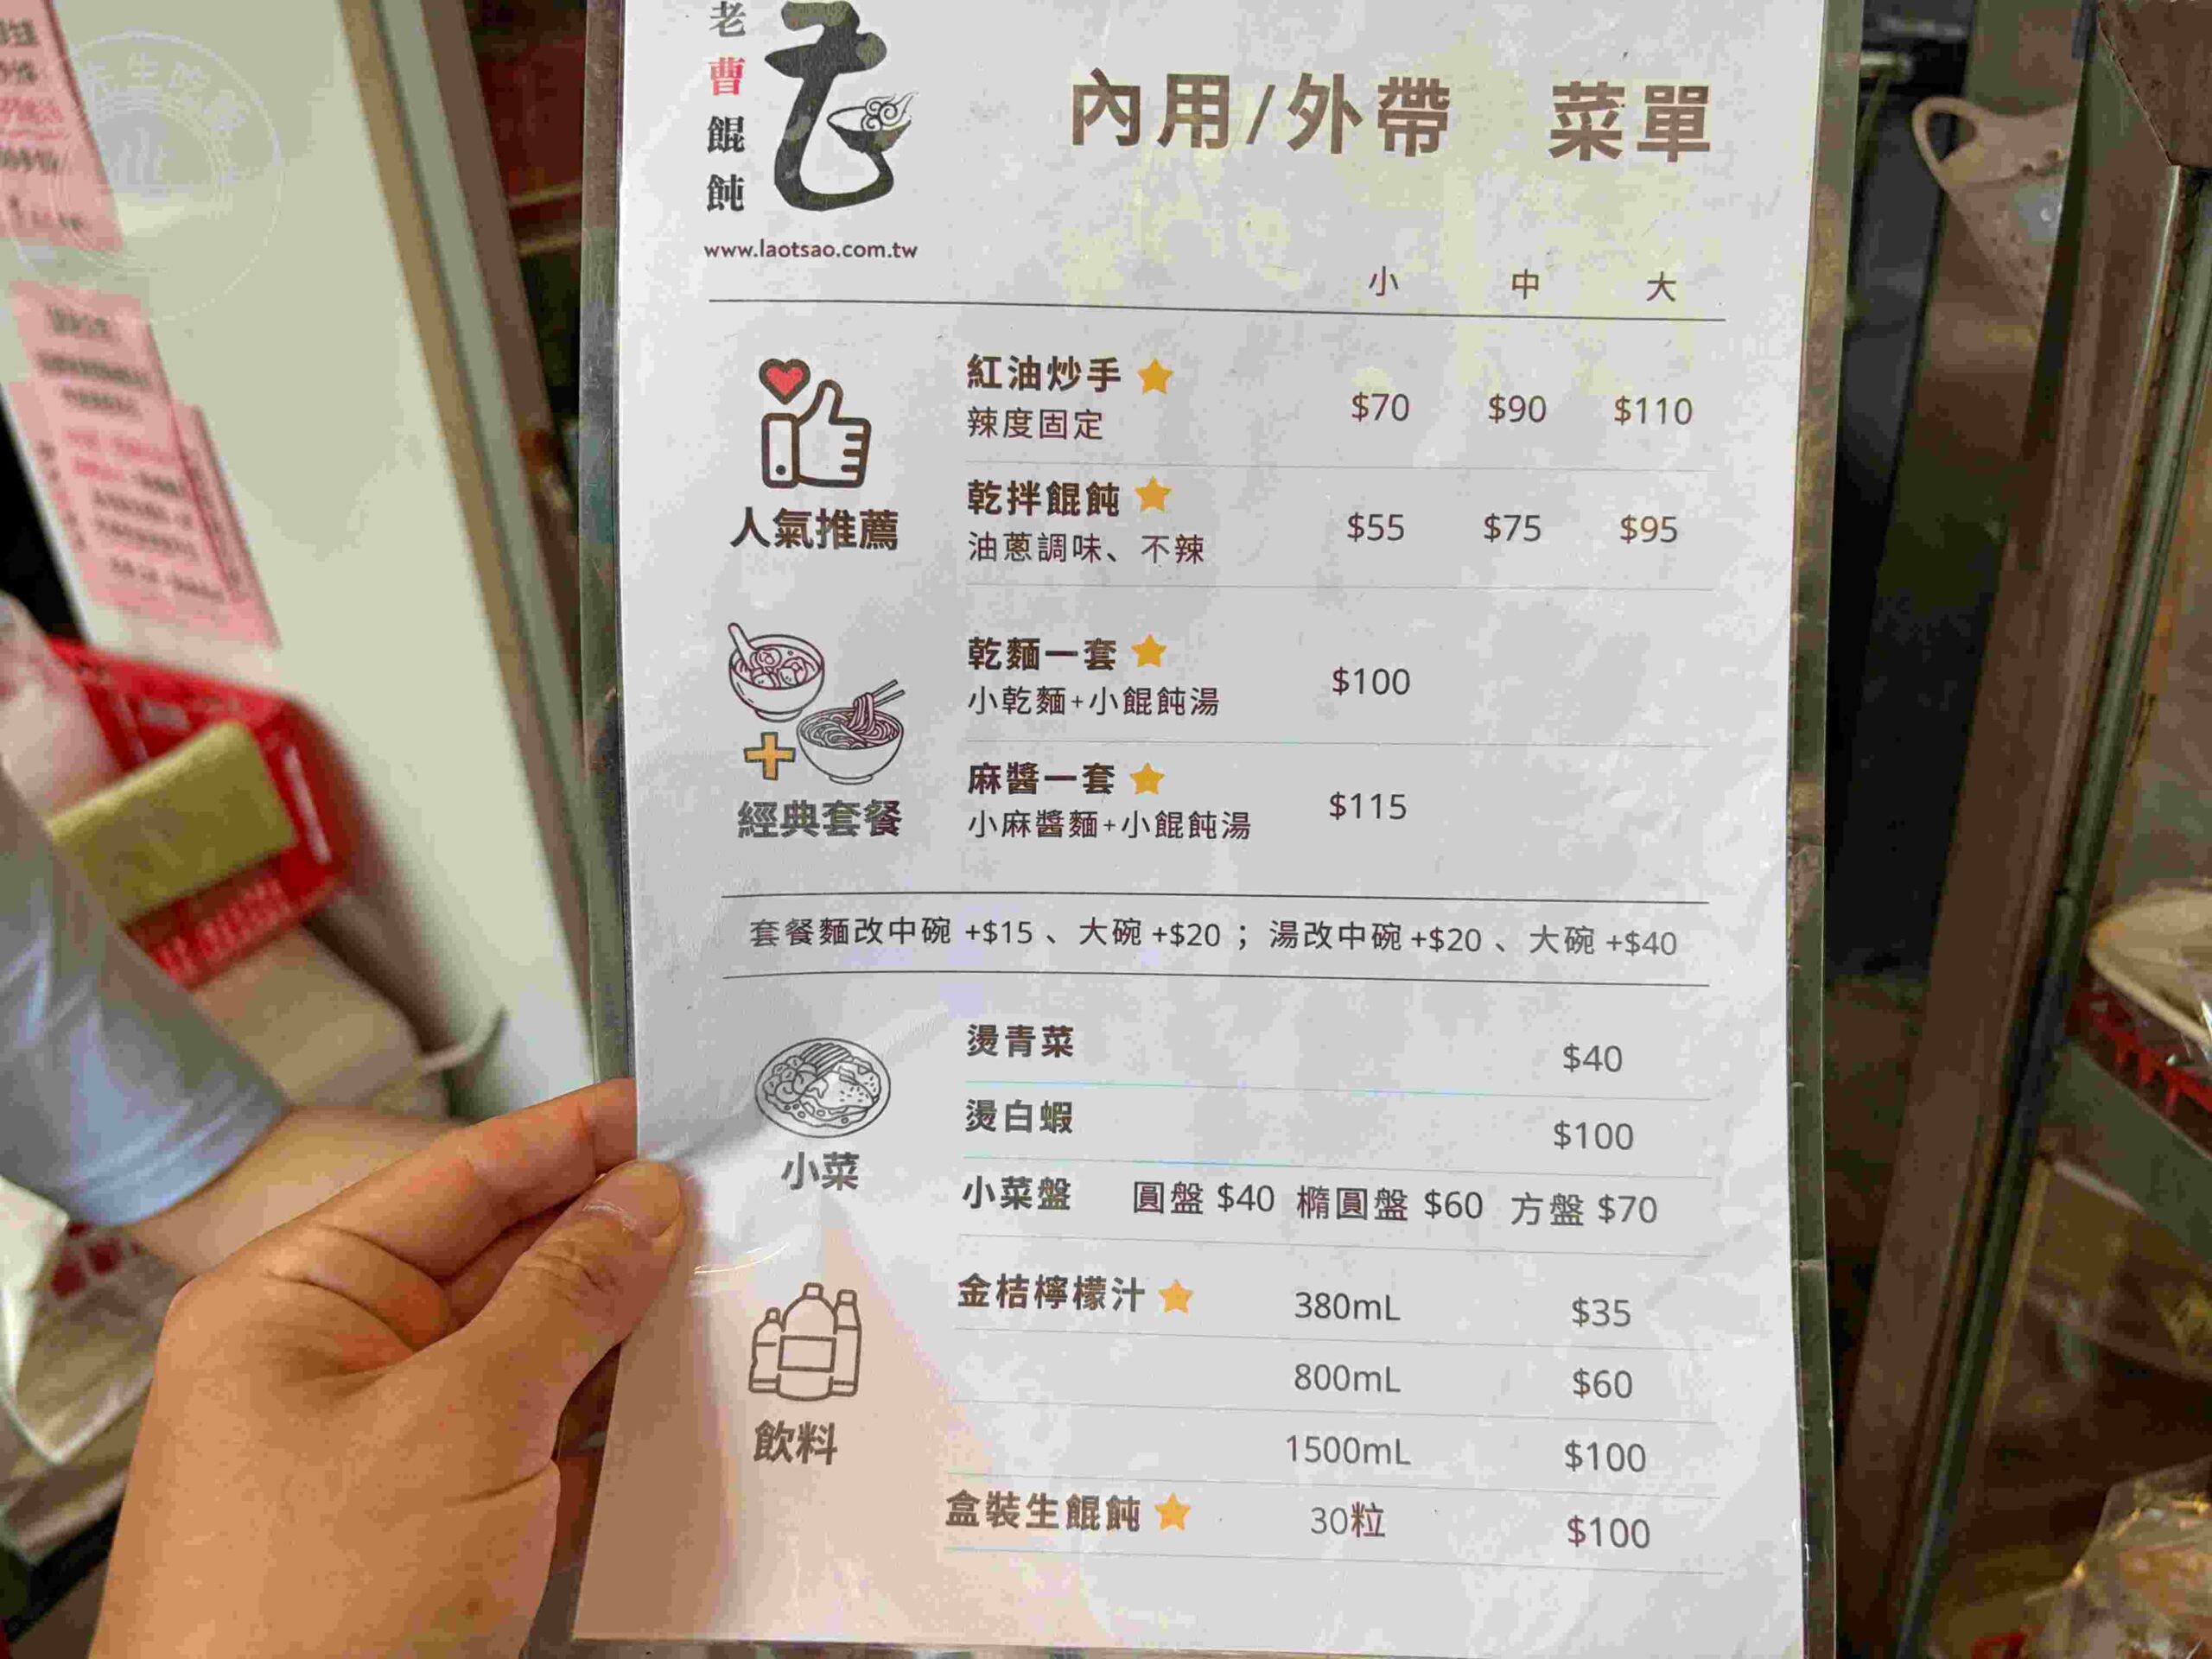 老曹餛飩
www.laotsao.com.tw
內用/外帶 菜單
小 中 大
人氣推薦
紅油炒手 $70 $90 $110
辣度固定
乾拌餛飩 $55 $75 $95
油蔥調味、不辣
經典套餐
乾麵一套 $100
小乾麵+小餛飩湯
麻醬一套 $115
小麻醬麵+小餛飩湯
套餐麵改中碗 +$15 、 大碗 +$20 ; 湯改中碗 +$20 、 大碗 +$40
小菜
燙青菜 $40
燙白蝦 $100
小菜盤 圓盤 $40 橢圓盤 $60 方盤 $70
飲料
金桔檸檬汁 380mL $35
800mL $60
1500mL $100
盒裝生餛飩 30粒 $100